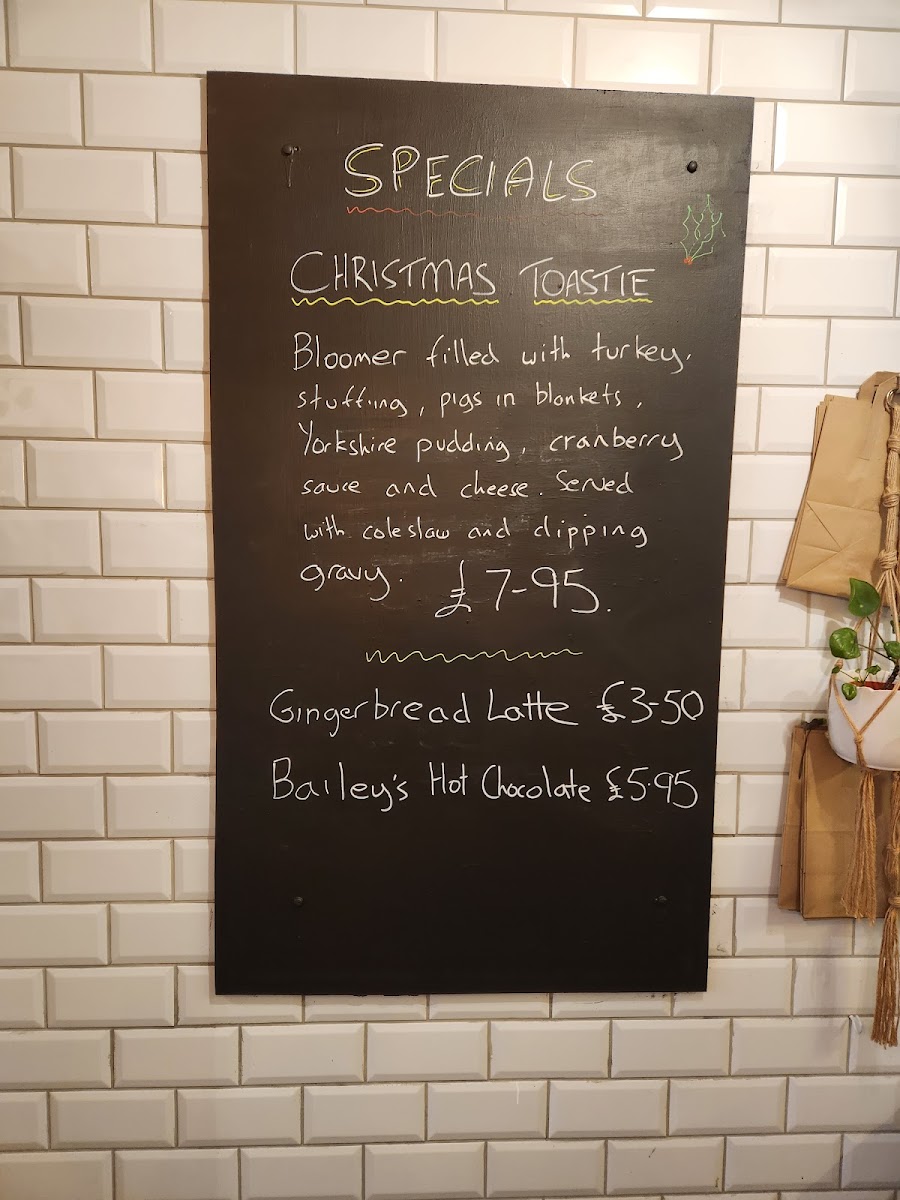 SPECIALS
CHRISTMAS TOASTIE
Bloomer filled with turkey,
stuffing, pigs in blankets,
Yorkshire pudding, cranberry
sauce and cheese. Served
with coleslaw and dipping
gravy. £7-95.
Gingerbread Latte £3-50
Bailey's Hot Chocolate £5.95